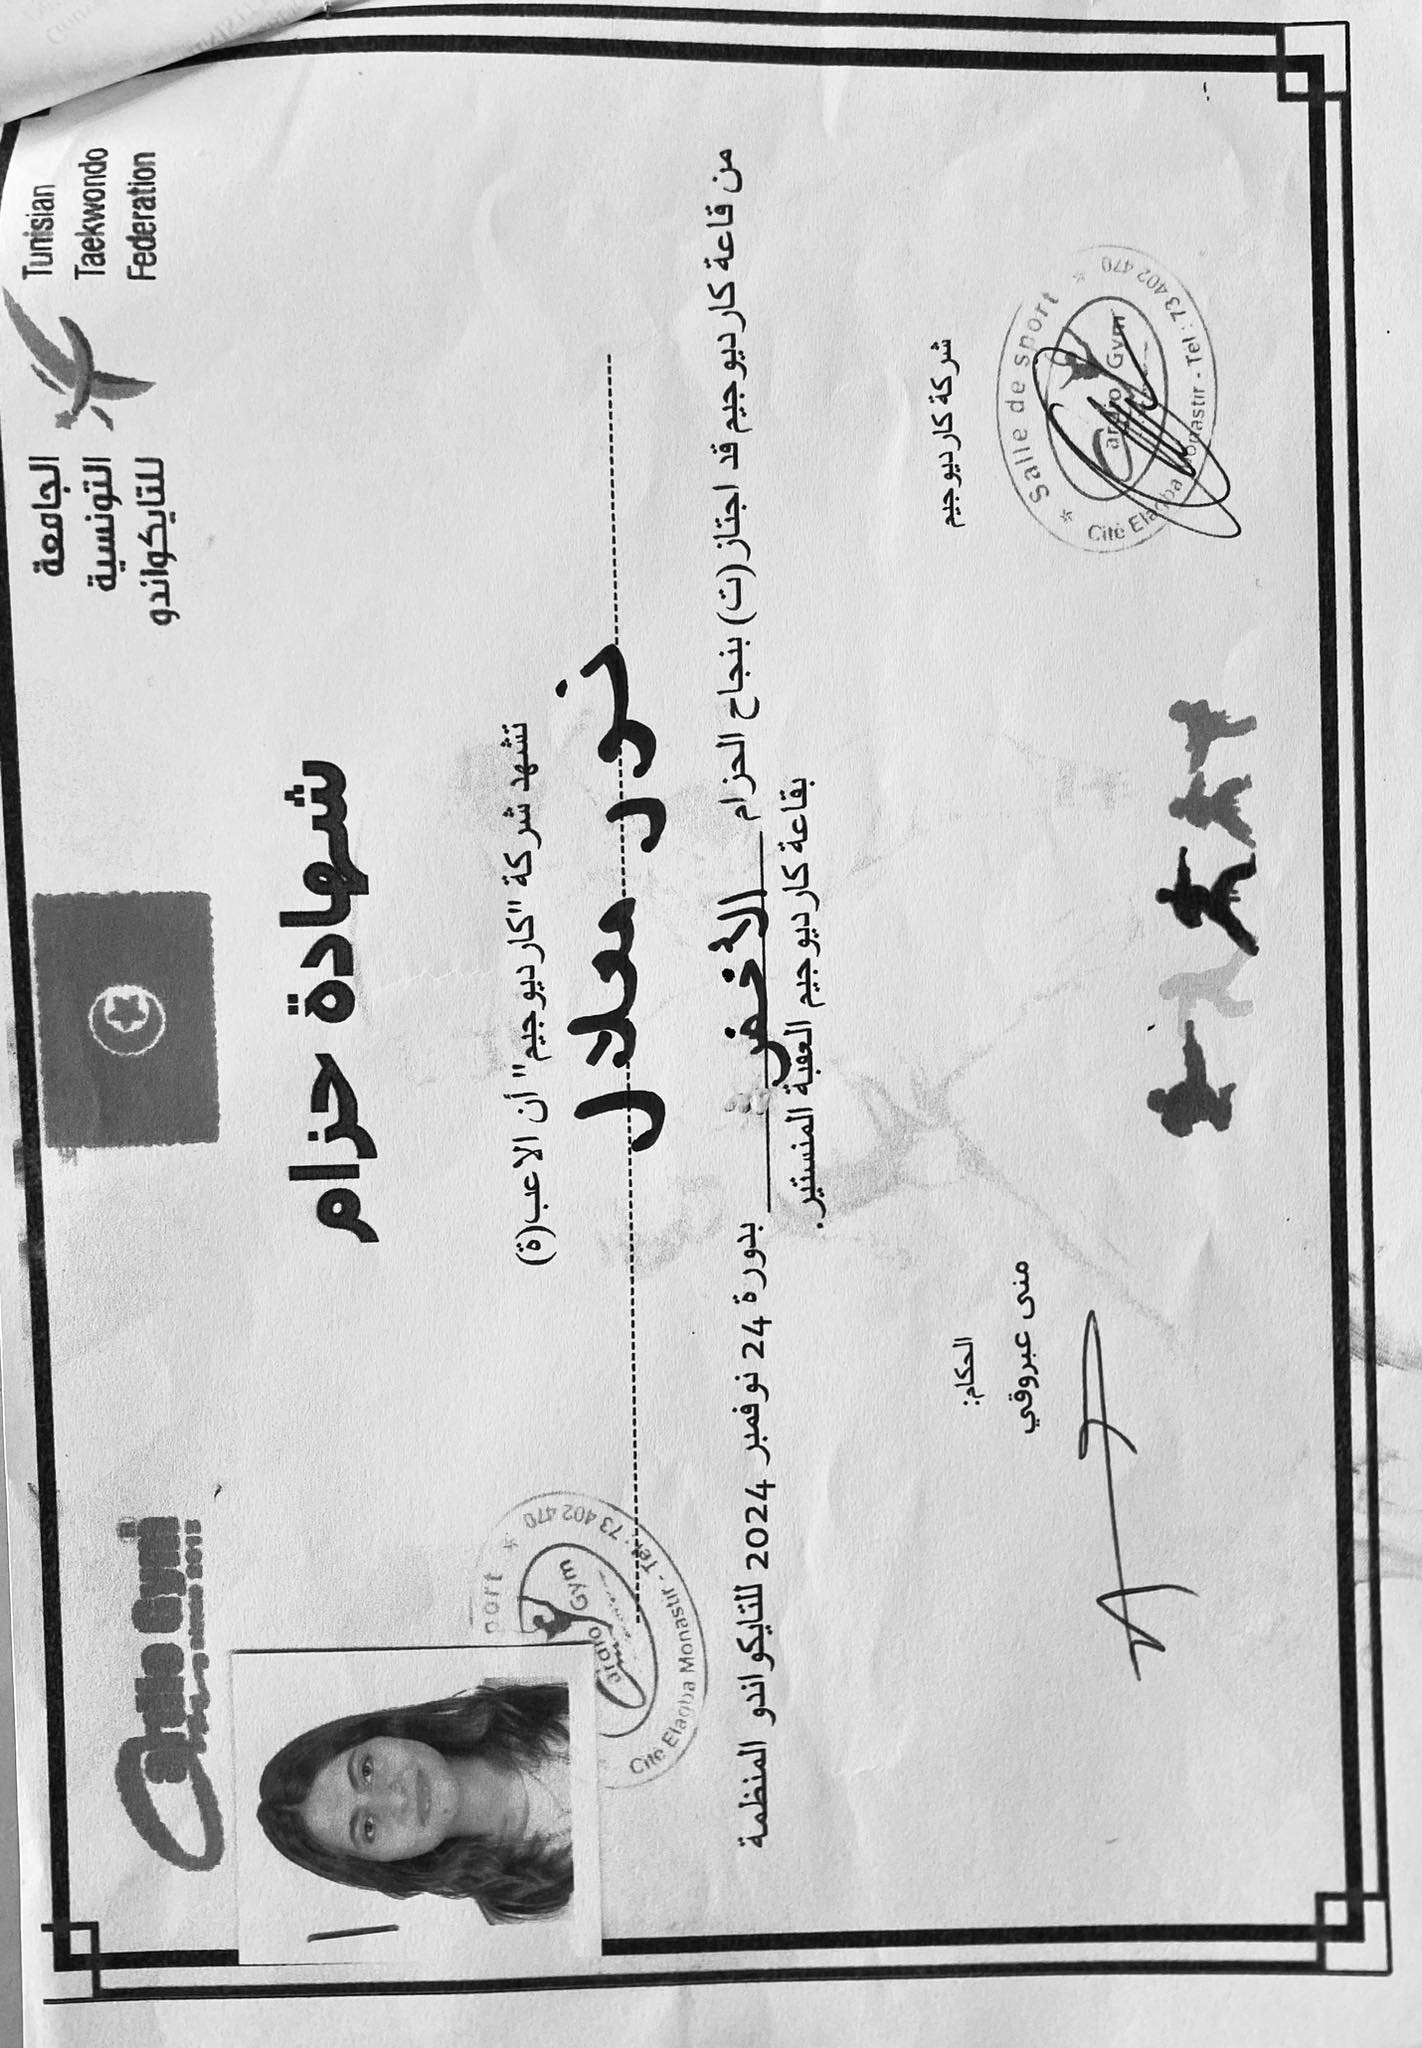 Cardio Gym
الجامعة
التونسية
للتايكواندو
Tunisian
Taekwondo
Federation
شهادة حزام
تشهد شركة "كارديوجيم" أن الاعب(ة)
نور معلال
من قاعة كارديوجيم قد اجتاز(ت) بنجاح الحزام الأخضر بدورة 24 نوفمبر 2024 للتايكواندو المنظمة
بقاعة كارديوجيم العقبة المنستير.
port * Cité Elaqba Monastir - Tel : 73 402 470 *
Cardio Gym
الحكام:
منى عبروقي
شركة كارديوجيم
* Salle de sport * Cité Elaqba Monastir - Tel : 73 402 470
Cardio Gym